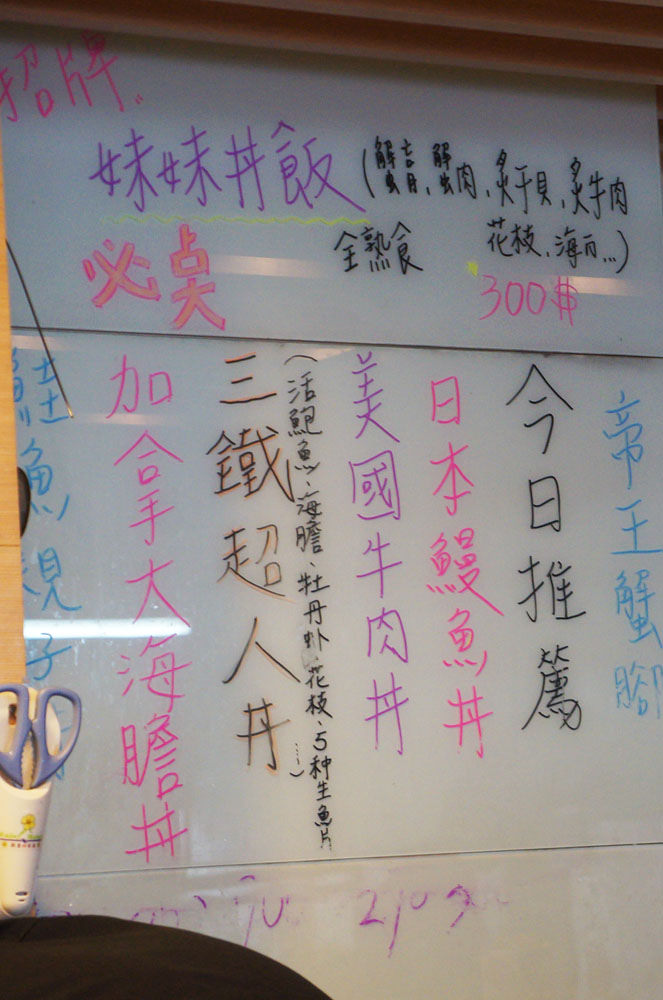 招牌..
妹妹丼飯
(蟹膏、蟹肉、炙干貝、炙牛肉
花枝、海...)
全熟食
必点
300$
帝王蟹腳
今日推篤
日本鰻魚丼
美國牛肉丼
三鐵超人丼
(活鮑魚、海膽、牡丹虾、花枝、5种生魚片……)
加拿大海膽丼
鮭魚親子